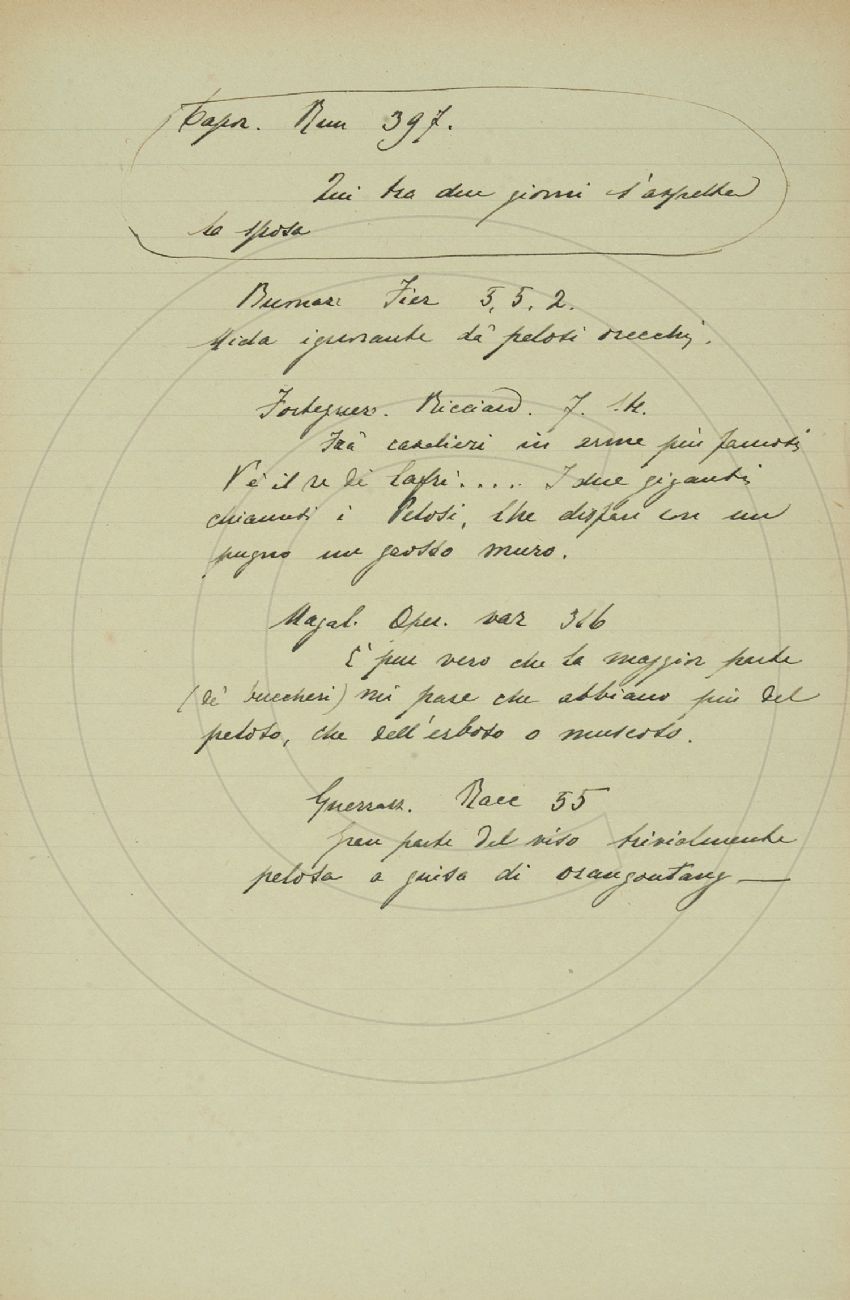 Capor. Rim 397.
Qui tra due giorni s'aspetta
la sposa
Buonar. Fier 3, 5, 2.
Mida ignorante dà pelosi orecchi.
Forteguer. Ricciard. 7.
Frà cavalieri in arme più famosi
V'è il re dè Cafri..... I due giganti
chiamati i Pelosi, che disfan con un
pugno un grosso muro.
Magal. Oper. var 316
E' pur vero che la maggior parte
(de' buccheri) mi pare che abbiano più del
peloso, che dell'erboso o muscoso.
Guerrazz. Racc 55
Gran parte del viso trivialmente
pelosa a guisa di orangoutang —